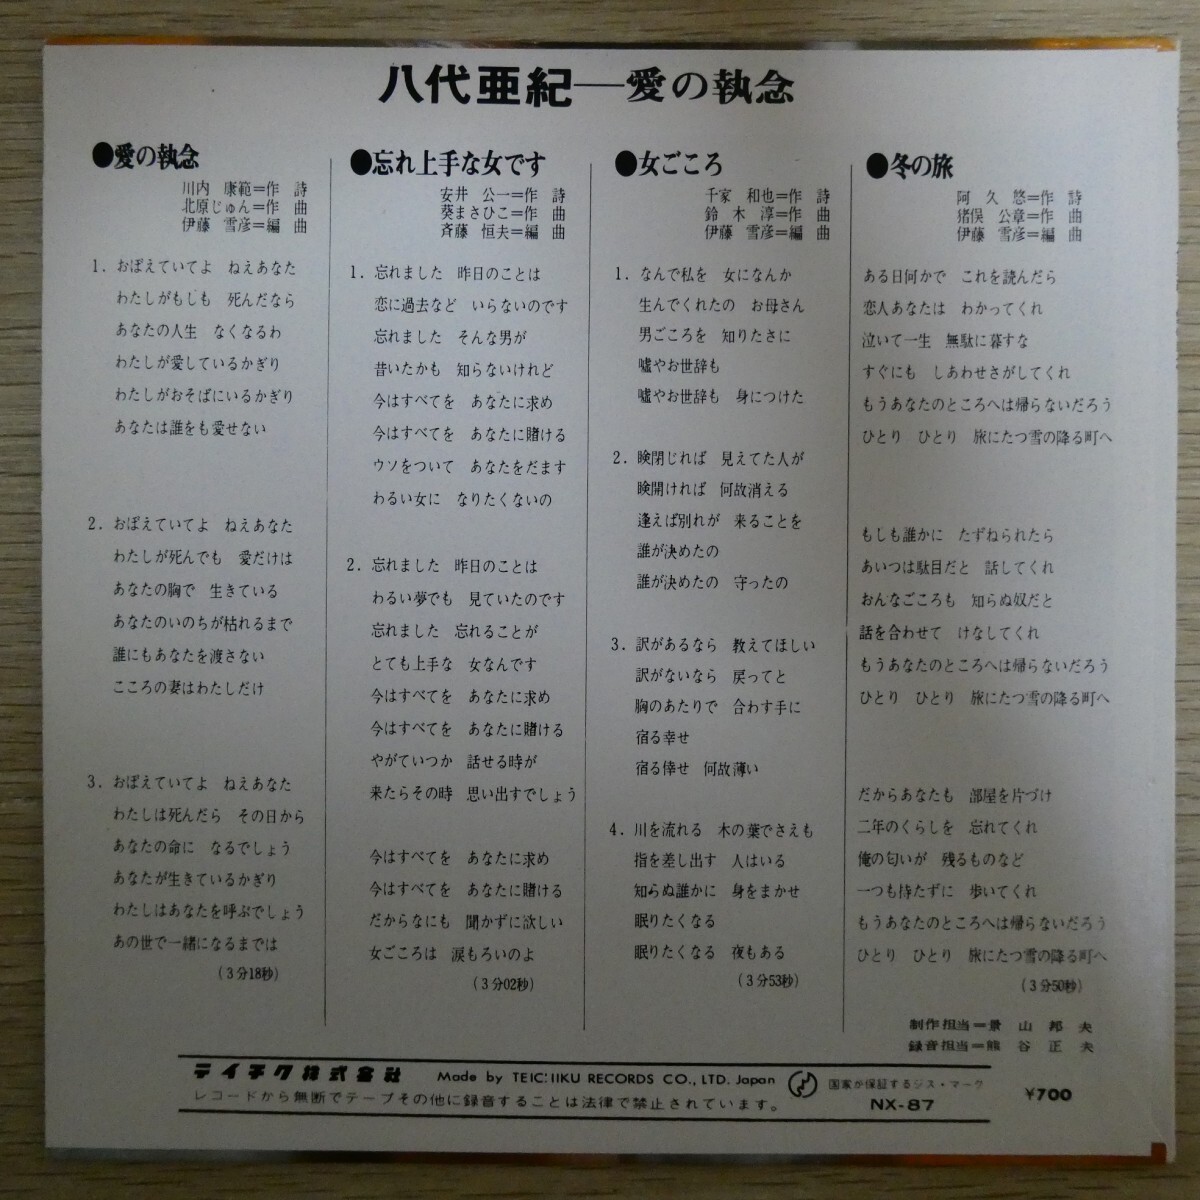 八代亜紀―愛の執念
●愛の執念
川内 康範＝作 詩
北原じゅん＝作 曲
伊藤 雪彦＝編 曲
1. おぼえていてよ ねえあなた
わたしがもしも 死んだなら
あなたの人生 なくなるわ
わたしが愛しているかぎり
わたしがおそばにいるかぎり
あなたは誰をも愛せない
2. おぼえていてよ ねえあなた
わたしが死んでも 愛だけは
あなたの胸で 生きている
あなたのいのちが枯れるまで
誰にもあなたを渡さない
こころの妻はわたしだけ
3. おぼえていてよ ねえあなた
わたしは死んだら その日から
あなたの命に なるでしょう
あなたが生きているかぎり
わたしはあなたを呼ぶでしょう
あの世で一緒になるまでは
(3分18秒)
●忘れ上手な女です
安井 公一＝作 詩
葵まさひこ＝作 曲
斉藤 恒夫＝編 曲
1. 忘れました 昨日のことは
恋に過去など いらないのです
忘れました そんな男が
昔いたかも 知らないけれど
今はすべてを あなたに求め
今はすべてを あなたに賭ける
ウソをついて あなたをだます
わるい女に なりたくないの
2. 忘れました 昨日のことは
わるい夢でも 見ていたのです
忘れました 忘れることが
とても上手な 女なんです
今はすべてを あなたに求め
今はすべてを あなたに賭ける
やがていつか 話せる時が
来たらその時 思い出すでしょう
今はすべてを あなたに求め
今はすべてを あなたに賭ける
だからなにも 聞かずに欲しい
女ごころは 涙もろいのよ
(3分02秒)
●女ごころ
千家 和也＝作 詩
鈴木 淳＝作 曲
伊藤 雪彦＝編 曲
1. なんで私を 女になんか
生んでくれたの お母さん
男ごころを 知りたさに
嘘やお世辞も
嘘やお世辞も 身につけた
2. 瞼閉じれば 見えてた人が
瞼開ければ 何故消える
逢えば別れが 来ることを
誰が決めたの
誰が決めたの 守ったの
3. 訳があるなら 教えてほしい
訳がないなら 戻ってと
胸のあたりで 合わす手に
宿る幸せ
宿る倖せ 何故薄い
4. 川を流れる 木の葉でさえも
指を差し出す 人はいる
知らぬ誰かに 身をまかせ
眠りたくなる
眠りたくなる 夜もある
(3分53秒)
●冬の旅
阿久 悠＝作 詩
猪俣 公章＝作 曲
伊藤 雪彦＝編 曲
ある日何かで これを読んだら
恋人あなたは わかってくれ
泣いて一生 無駄に暮すな
すぐにも しあわせさがしてくれ
もうあなたのところへは帰らないだろう
ひとり ひとり 旅にたつ雪の降る町へ
もしも誰かに たずねられたら
あいつは駄目だと 話してくれ
おんなごころも 知らぬ奴だと
話を合わせて けなしてくれ
もうあなたのところへは帰らないだろう
ひとり ひとり 旅にたつ雪の降る町へ
だからあなたも 部屋を片づけ
二年のくらしを 忘れてくれ
俺の匂いが 残るものなど
一つも持たずに 歩いてくれ
もうあなたのところへは帰らないだろう
ひとり ひとり 旅にたつ雪の降る町へ
(3分50秒)
制作担当＝景 山 邦 夫
録音担当＝熊 谷 正 夫
テイチク株式会社 Made by TEICHIKU RECORDS CO., LTD. Japan 国家が保証するジス・マーク ¥700
レコードから無断でテープその他に録音することは法律で禁止されています。 NX-87